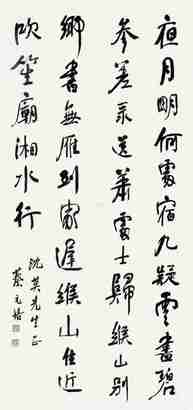 夜月明何處宿九疑雲盡碧
參差 录送蕭處士歸緱山別
鄉書無雁到家遲緱山住近
吹笙廟湘水行
沈英先生正
蔡元培